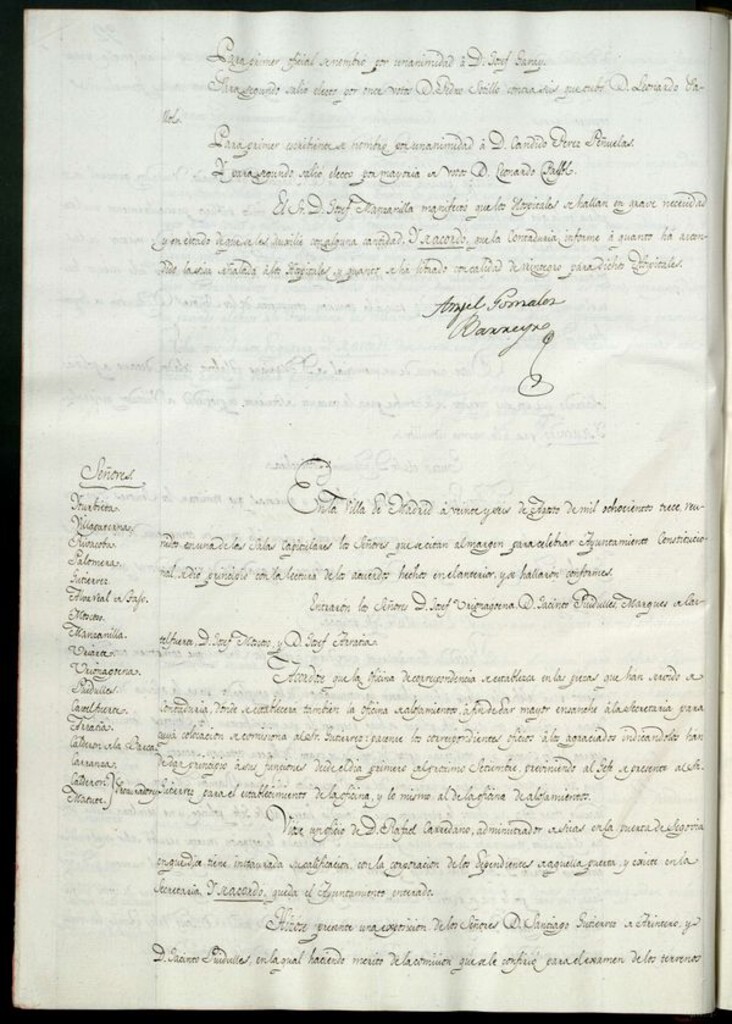 Para primer oficial se nombró por unanimidad á D. Josef Garay.
Para segundo salió electo por once votos D. Pedro Sotillo contra seis que tubo D. Leonardo
Para primer escribiente se nombró por unanimidad á D. Candido Perez Peñuelas.
Y para segundo salió electo por mayoria de votos D. Leonardo
El Sr. D. Josef Manzanilla manifestó que los Hospitales se hallan en grave necesidad
y en estado de que se les auxilie con alguna cantidad, Y se acordó, que la Contaduria informe á quanto há ascen-
dido la señalada á los Hospitales y quanto se ha librado con calidad de reintegro para dichos Hospitales.
Angel Gonzalez
Barreyro
Señores
Yturbieta.
Villagarcia.
Palomera.
Gutierrez.
Monreal
Manzanilla.
Uriarte.
Urionagoena.
Puidulles.
Castelfuerte.
Calderon de la Barca
Carranza.
Calderon
Matute.
Procuradores
En la Villa de Madrid á veinte y seis de Agosto de mil ochocientos trece, reu-
nidos en una de las Salas Capitulares los Señores que se citan al margen para celebrar Ayuntamiento Constitucio-
nal, se dió principio con la lectura de los acuerdos hechos en el anterior, y se hallaron conformes.
Entraron los Señores D. Josef Urionagoena, D. Jacinto Puidulles, Marques de Cas-
telfuerte, D. Josef y D. Josef
Acordóse que la oficina de correspondencia se establezca en las piezas que han servido de
Contaduria, donde se establecerá tambien la oficina de alojamientos, á fin de dar mayor ensanche á la secretaria para
cuya colocacion se comisiona al Sr. Gutierrez: pasense los correspondientes oficios á los agraciados indicandoles han
de dar principio á sus funciones desde el dia primero del proximo Setiembre, previniendo al Gefe se presente al Sr.
Gutierrez para el establecimiento de la oficina, y lo mismo al de la oficina de alojamientos.
Vióse un oficio de D. Rafael Carredano, administrador de sisas en la puerta de Segovia
en que dice tiene instaurada su calificacion, con la corporacion de los dependientes de aquella puerta, y existe en la
Secretaria, Y se acordó, queda el Ayuntamiento enterado.
Hizose presente una exposicion de los Señores D. Santiago Gutierrez de Arintero, y
D. Jacinto Puidulles, en la qual haciendo merito de la comision que se le confirió para el examen de los terrenos